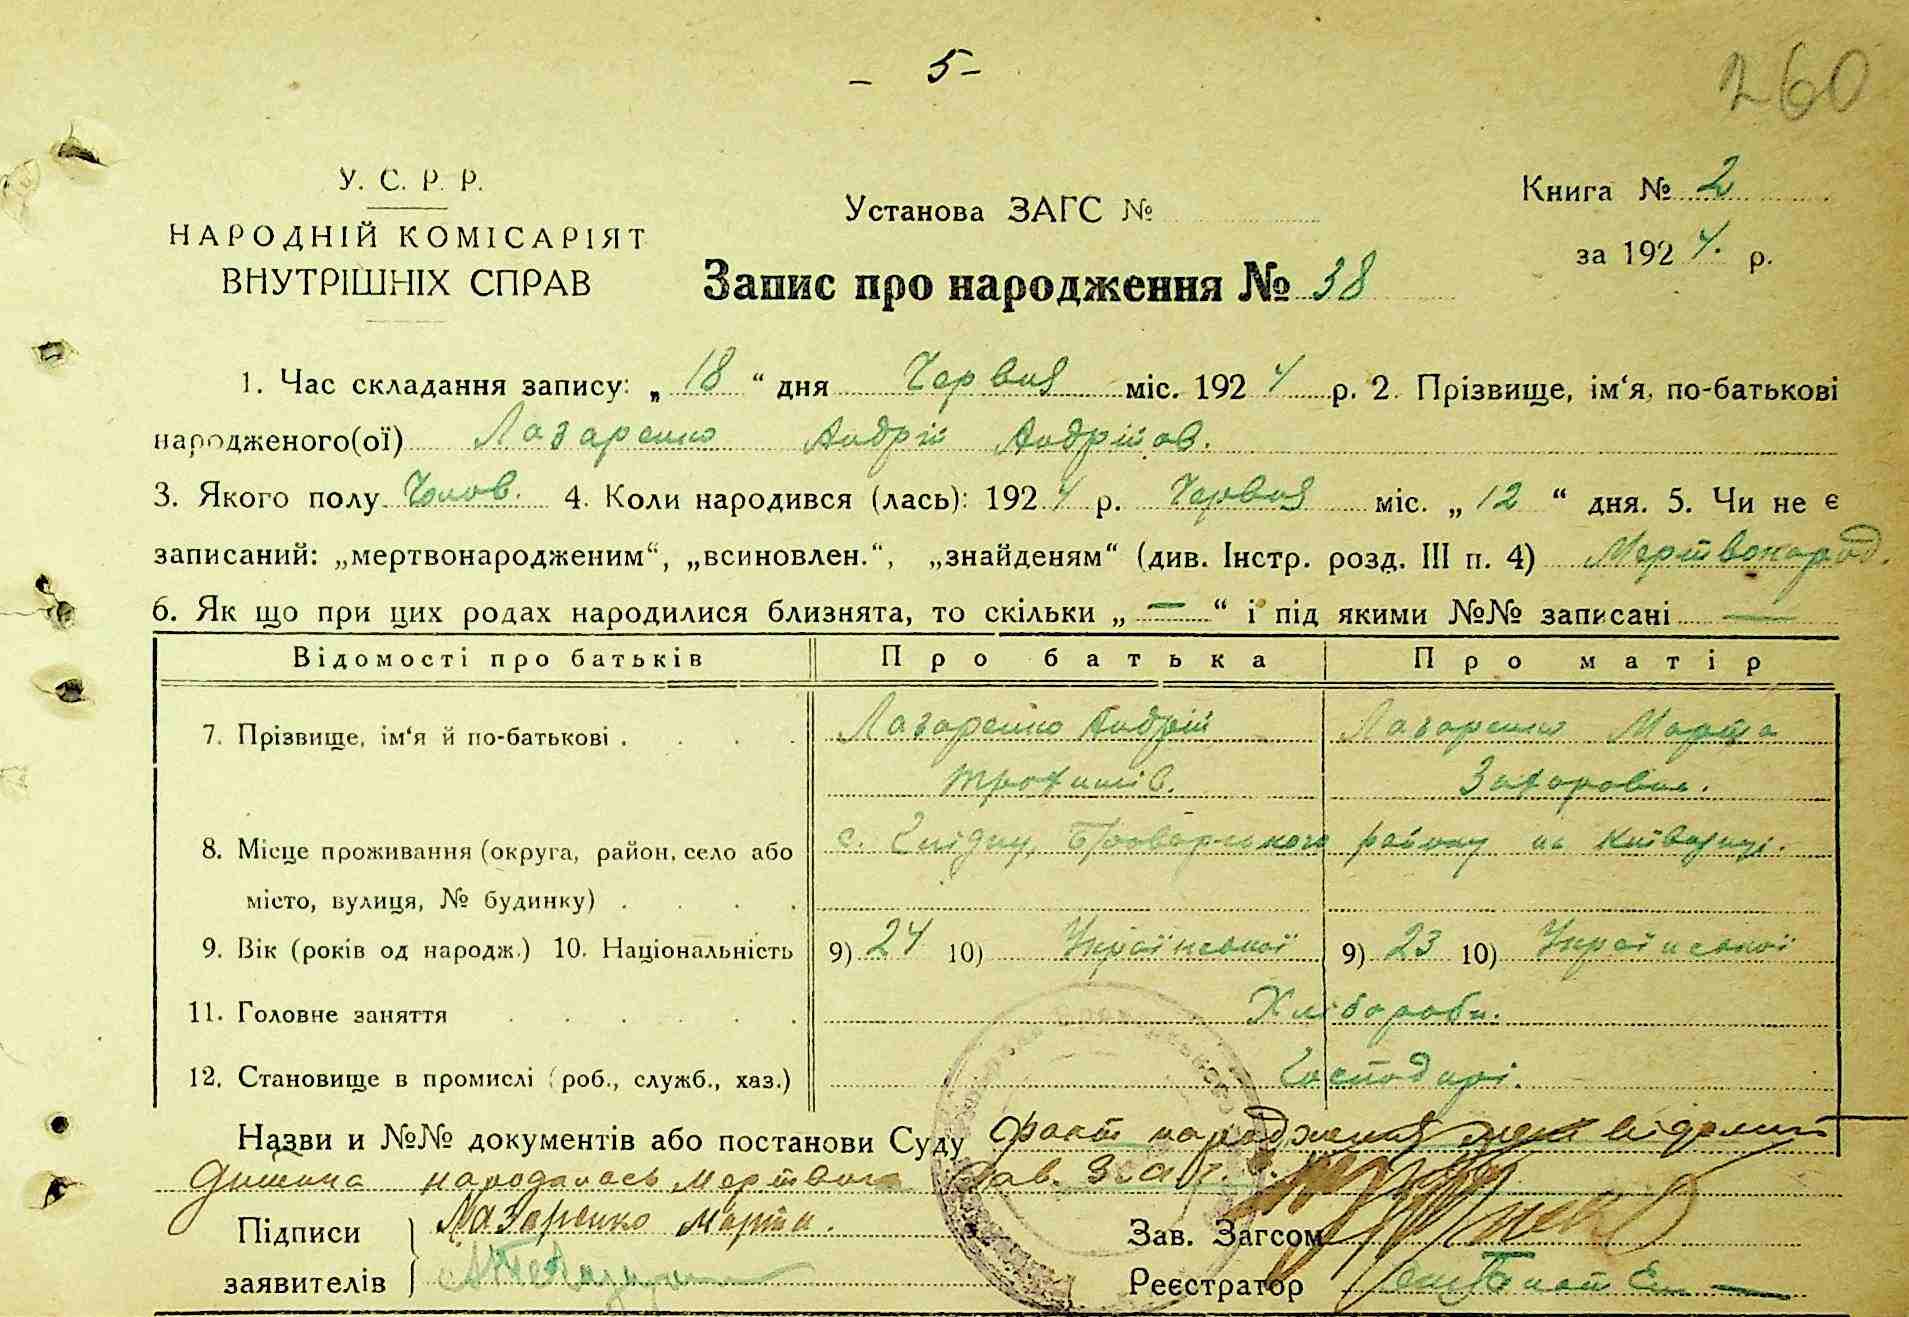 - 5 -
260
У. С. Р. Р.
НАРОДНІЙ КОМІСАРІЯТ
ВНУТРІШНІХ СПРАВ
Установа ЗАГС №
Книга № 2
за 1924 р.
Запис про народження № 38
1. Час складання запису: „ 18 “ дня Червня міс. 1924 р. 2. Прізвище, ім‘я, по-батькові
народженого(ої) Лазаренко Андрій Андрійов.
3. Якого полу Чолов. 4. Коли народився (лась): 1924 р. Червня міс. „ 12 “ дня. 5. Чи не є
записаний: „мертвонародженим“, „всиновлен.“, „знайденям“ (див. Інстр. розд. III п. 4) Мертвонарод.
6. Як що при цих родах народилися близнята, то скільки „ — “ і під якими №№ записані —
Відомості про батьків Про батька Про матір
7. Прізвище, ім‘я й по-батькові . . . . Лазаренко Андрій Лазаренко Марта
Трохимів. Захаровна.
8. Місце проживання (округа, район, село або с. Броварського району на Київщині.
місто, вулиця, № будинку) . . . .
9. Вік (років од народж.) 10. Національність 9) 24 10) Української 9) 23 10) Української
11. Головне заняття . . . . . . Хлібороби.
12. Становище в промислі (роб., служб., хаз.) Господарі.
Назви и №№ документів або постанови Суду Факт народження мені відомий
Дитина народилась мертвою Зав. Загс.
Підписи Лазаренко Марта. Зав. Загсом
заявителів Реєстратор